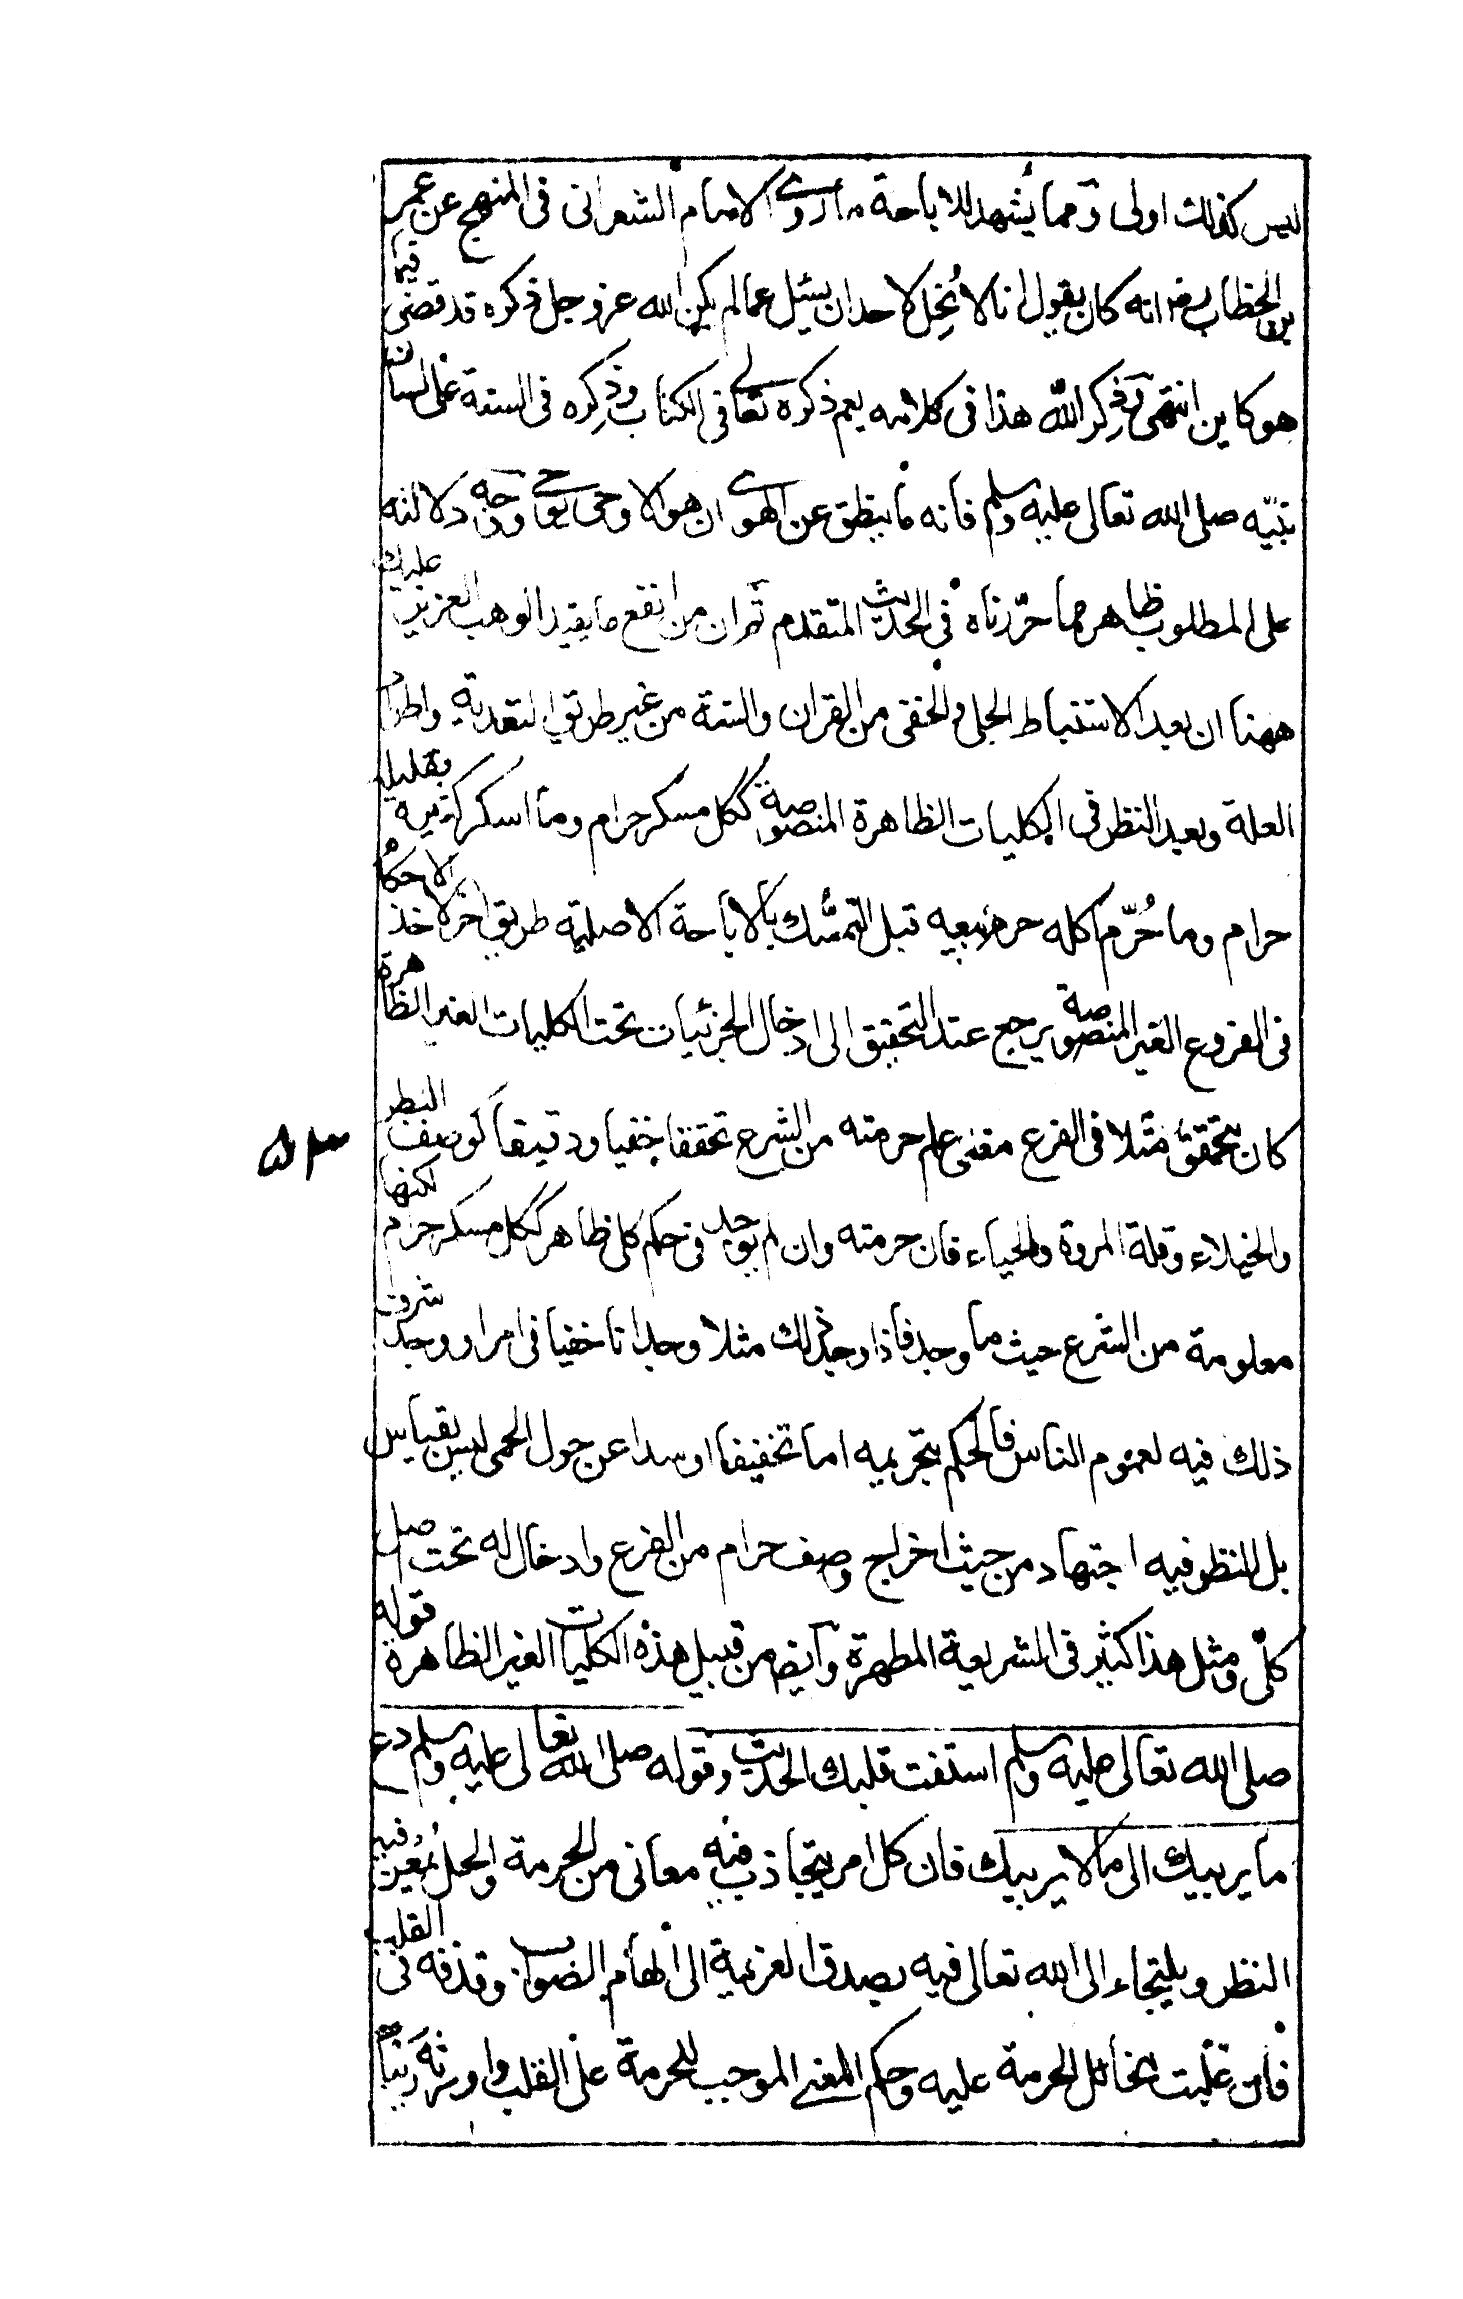 ليس كذلك اولى ومما يشهد للاباحة ما روى الامام الشعرانى فى المنهج عن عمر
بن الخطاب رضـ انه كان يقول انا لا نُحِل لاحد ان يسئل عما لم يكن الله عز وجل ذكره قد قضى فيما
هو كاين انتهى وذِكر الله هذا فى كلامه يعم ذكره تعالى فى الكتاب وذِكره فى السنة على لسان
نبيّه صلى الله تعالى عليه وسلم فانه ما ينطق عن الهوى ان هو الا وحى يوحى ووجه دلالته
على المطلوب ظاهر مما حرّرناه فى الحديث المتقدم ثم ان من انفع ما يفيد الوهب العزيز عليك
ههنا ان بعد الاستنباط الجلى والخفى من القران والسنة من غير طريق التعدية واطراد
العلة وبعد النظر فى الكليات الظاهرة المنصوصة ككل مسكر حرام وما اسكر كثيره بقليله
حرام وما حُرّم اكله حرم بيعه قبل التمسّك بالاباحة الاصلية طريق اخر لاخذ الاحكام
فى الفروع الغير المنصوصة يرجع عند التحقيق الى ادخال الجزئيات تحت الكليات الغير الظاهرة
كان يتحقق مثلا فى الفرع معنى علم حرمته من الشرع تحققا خفيا ودقيقا كوصف البطر
۵۳
والخيلاء وقلة المروة والحياء فان حرمته وان لم يوجد فى حكم كلى ظاهر ككل مسكر حرام لكنها
معلومة من الشرع حيث ما وجد فاذا وجد ذلك مثلا وجدانا خفيا فى امر او وجد شروت
ذلك فيه لعموم الناس فالحكم بتحريمه اما تخفيفا او سدا عن حول الحمى ليس بقياس
بل للنظر فيه اجتهاد من حيث اخراج وصف حرام من الفرع وادخال له تحت اصل
كلّى ومثل هذا كثير فى الشريعة المطهرة وايضـ من قبيل هذه الكليات الغير الظاهرة قوله
صلى الله تعالى عليه وسلم استفت قلبك الحديث وقوله صلى الله تعالى عليه وسلم دع
ما يريبك الى ما لا يريبك فان كل امر يتجاذب فيه معانى من الحرمة والحل يُمْعن فيه
النظر ويلتجاء الى الله تعالى فيه بصدق العزيمة الى الهام الصواب وقذفه فى القلب
فان غلبت مخائل الحرمة عليه وحكم المعنى الموجب للحرمة على القلب واورثه ريبا